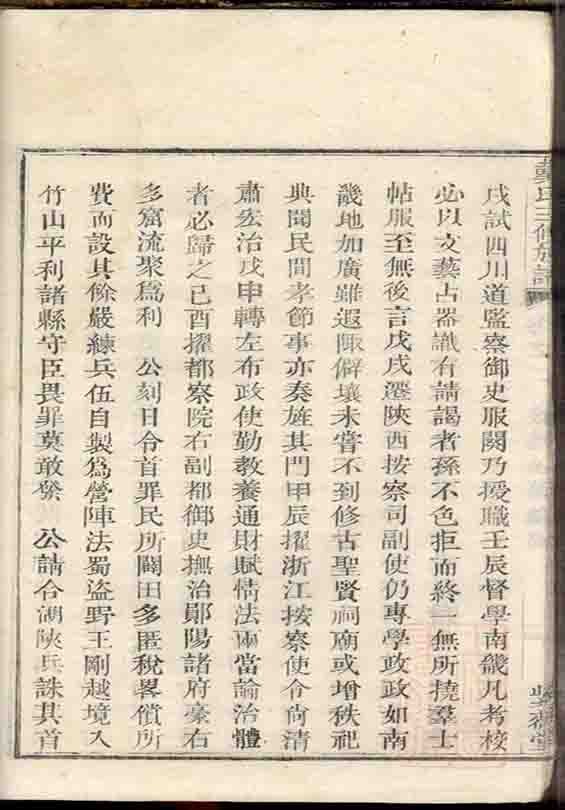 戴氏三修族譜
戌試四川道監察御史服闋乃授職壬辰督學南畿凡考校
必以文藝占器識有請謁者孫不色拒而終一無所撓羣士
帖服至無後言戊戌遷陝西按察司副使仍專學政政如南
畿地加廣雖遐陬僻壤未嘗不到修古聖賢祠廟或增秩祀
典聞民間孝節事亦奏旌其門甲辰擢浙江按察使令尚清
肅宏治戊申轉左布政使勤教養通財賦情法兩當論治體
者必歸之己酉擢都察院右副都御史撫治鄖陽諸府豪右
多窩流聚爲利　公刻日令首罪民所闢田多匿稅畧償所
費而設其餘嚴練兵伍自製爲營陣法蜀盜野王剛越境入
竹山平利諸縣守臣畏罪莫敢發　公請合湖陝兵誅其首